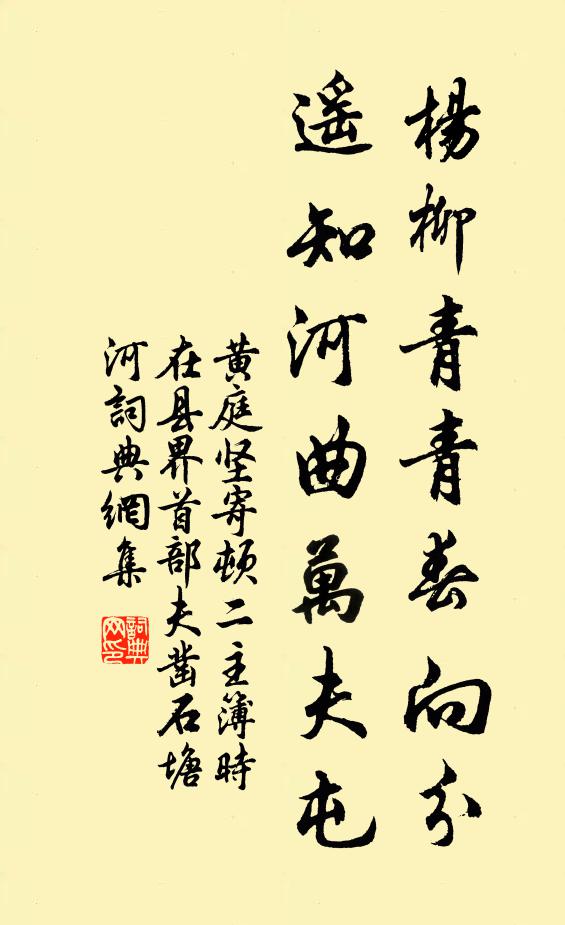 楊柳青青春向分
遥知河曲萬夫屯
黄庭坚寄顿二主簿時
在县界首部夫凿石塘
河詞典網集
詞典网印